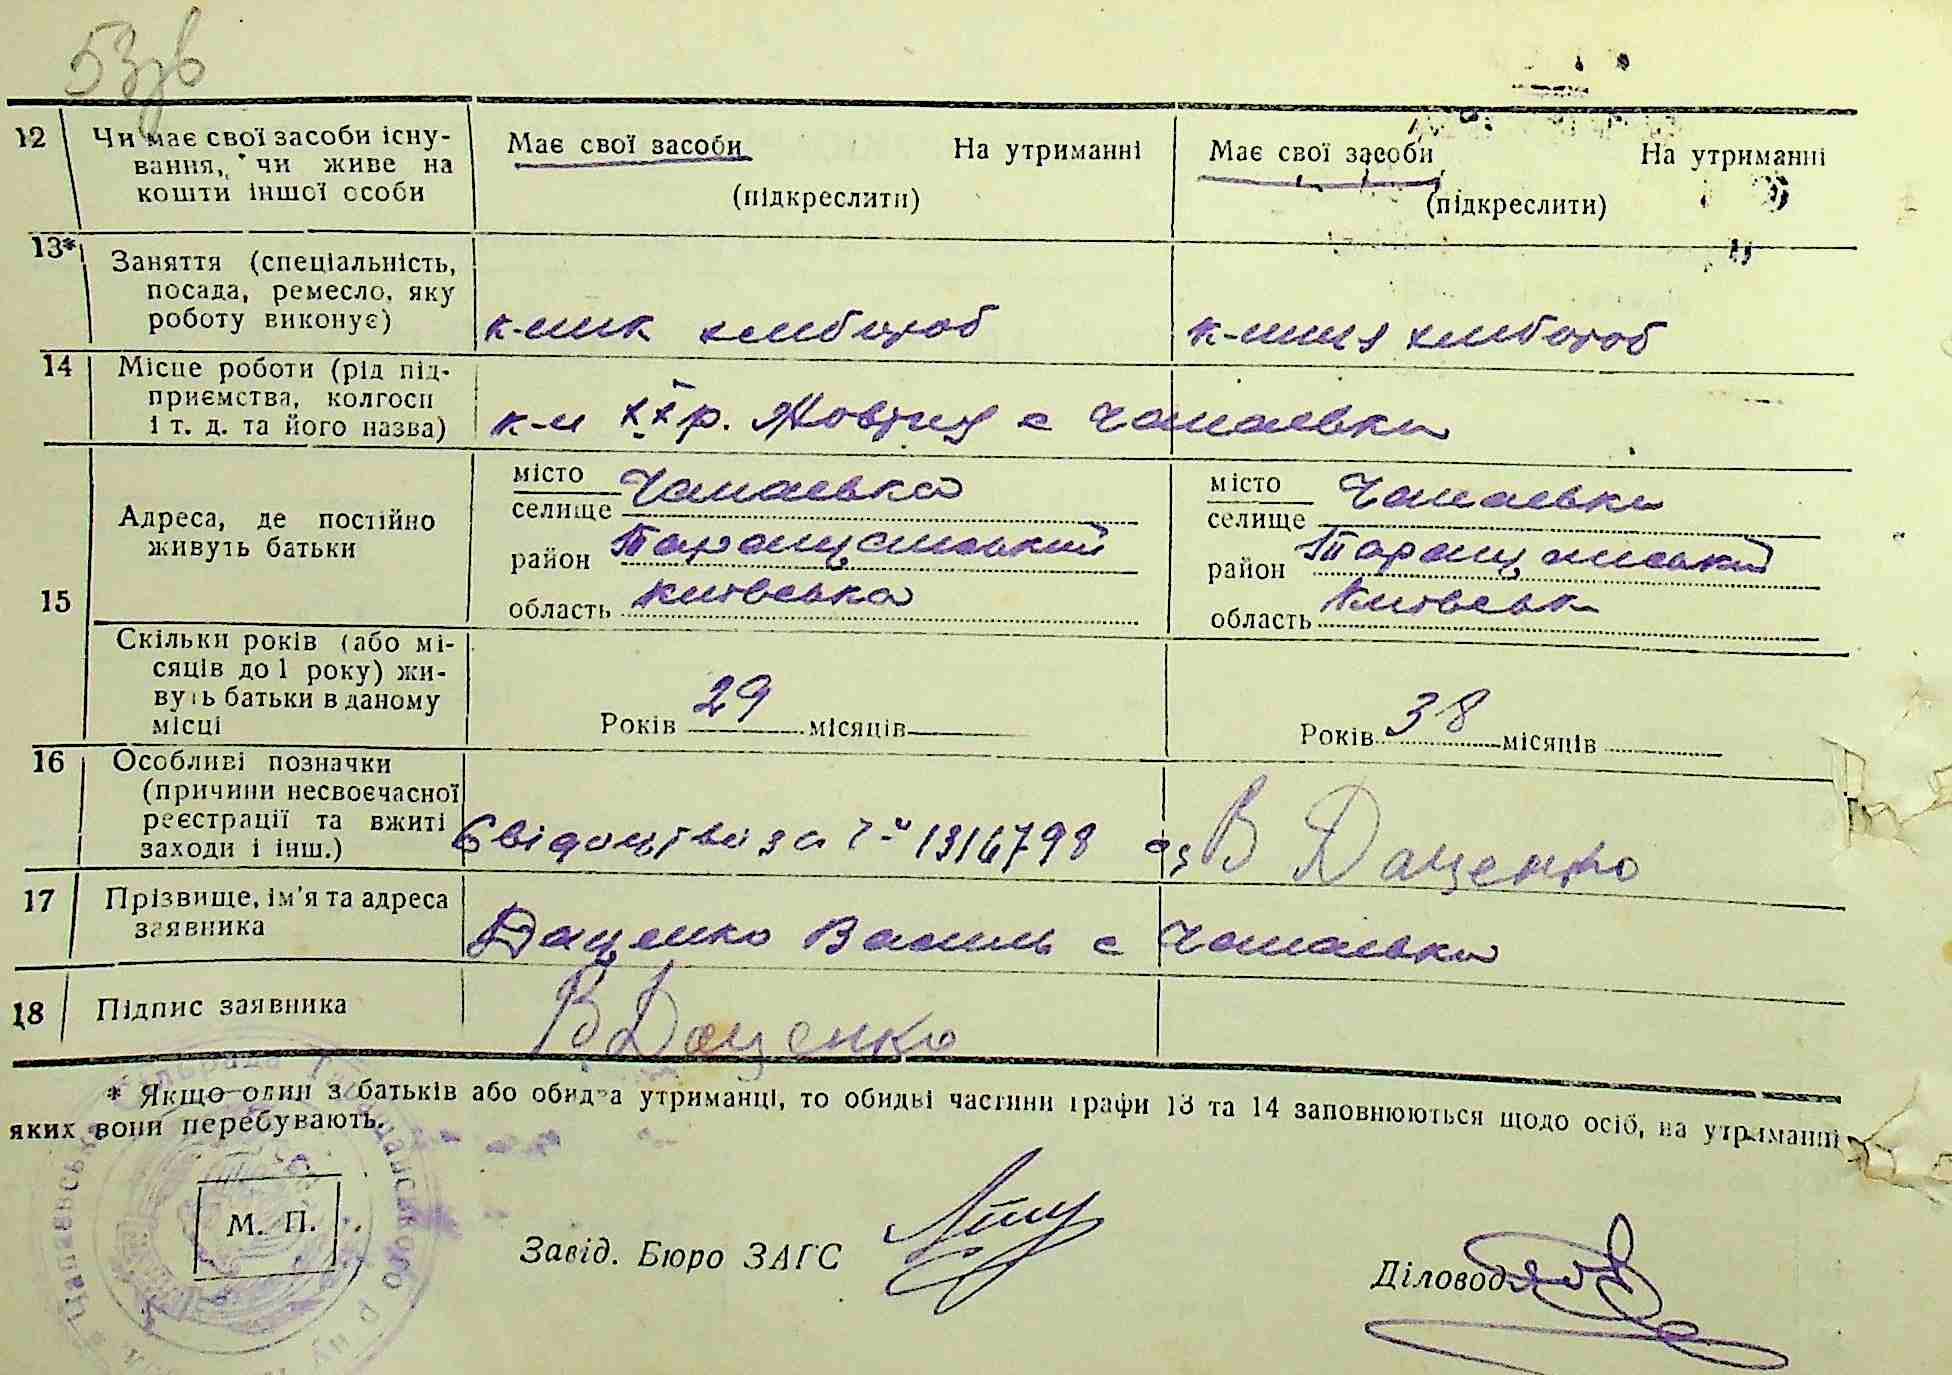 53зв
12 Чи має свої засоби існу- Має свої засоби На утриманні Має свої засоби На утриманні
вання, чи живе на
кошти іншої особи (підкреслити) (підкреслити)
13* Заняття (спеціальність,
посада, ремесло, яку
роботу виконує) к-ник хлібороб к-ниця хлібороб
14 Місце роботи (рід під-
приємства, колгосп
і т. д. та його назва) к-п ХХ р. Жовтня с Чапаєвка
15 Адреса, де постійно
живуть батьки
місто Чапаєвка місто Чапаєвка
селище селище
район Таращанський район Таращанський
область Київська область Київськ
Скільки років (або мі-
сяців до 1 року) жи-
вуть батьки в даному
місці Років 29 місяців Років 38 місяців
16 Особливі позначки
(причини несвоєчасної
реєстрації та вжиті
заходи і інш.) Свідоцтво за 1316798 В Даценко
17 Прізвище, ім'я та адреса
заявника Даценко Василь с Чапаєвка
18 Підпис заявника В Даценко
* Якщо один з батьків або обидва утриманці, то обидві частини графи 13 та 14 заповнюються щодо осіб, на утриманні
яких вони перебувають.
М. П.
Завід. Бюро ЗАГС
Діловод